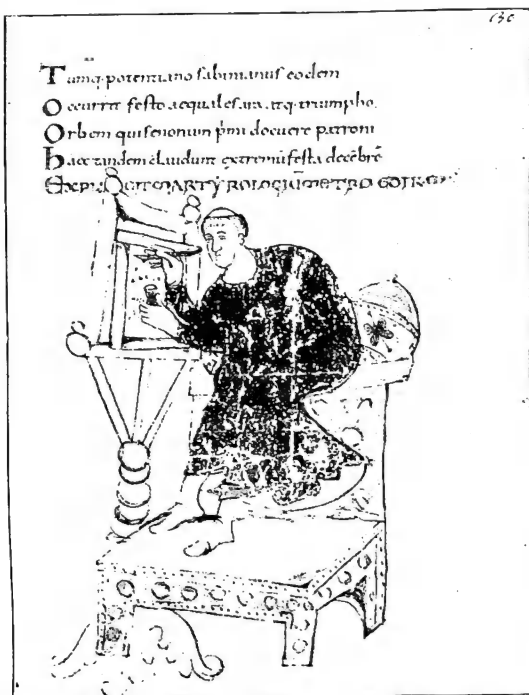 130
Tumq. potentiano sabinianus eodem
Occurrit festo aequales ara. atq. triumpho.
Orbem qui senonum pmi docuere patroni
Haec tandem claudunt extremū festa decēbrē
EXPLICIT MARTYROLOGIŪ METRO